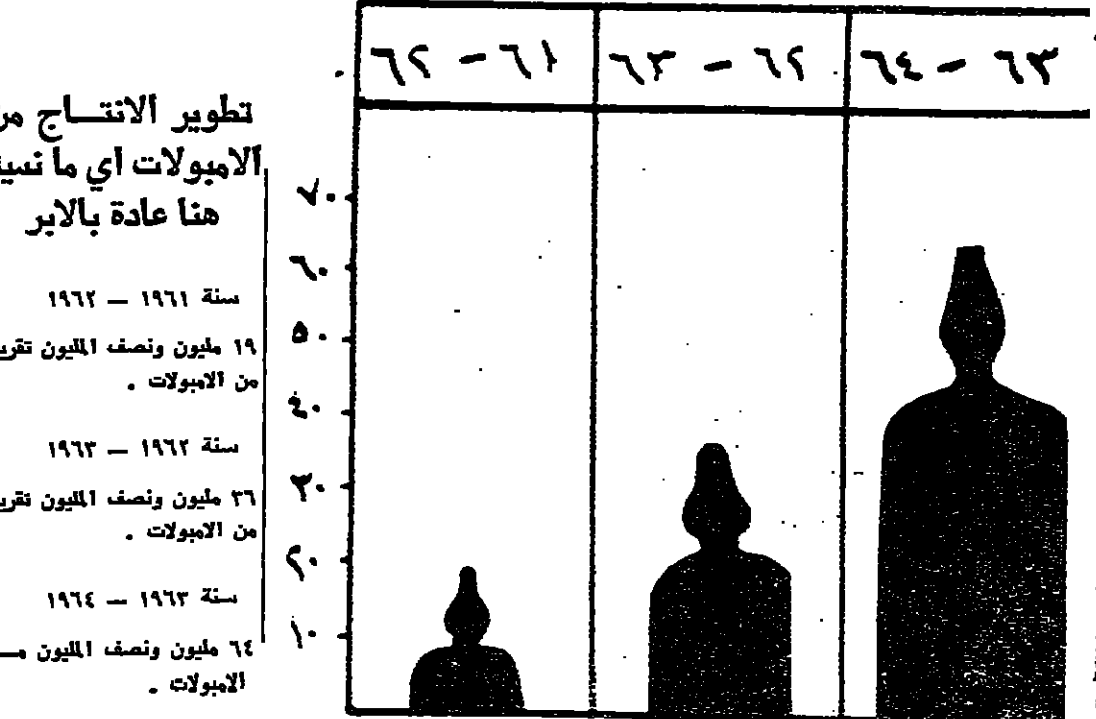 ٦١ - ٦٢
٦٢ - ٦٣
٦٣ - ٦٤
تطوير الانتـــاج
الامبولات اي ما
هنا عادة بالابر
سنة ١٩٦١ — ١٩٦٢
١٩ مليون ونصف المليون
من الامبولات .
سنة ١٩٦٢ — ١٩٦٣
٣٦ مليون ونصف المليون
من الامبولات .
سنة ١٩٦٣ — ١٩٦٤
٦٤ مليون ونصف المليون
الامبولات .
٧٠
٦٠
٥٠
٤٠
٣٠
٢٠
١٠